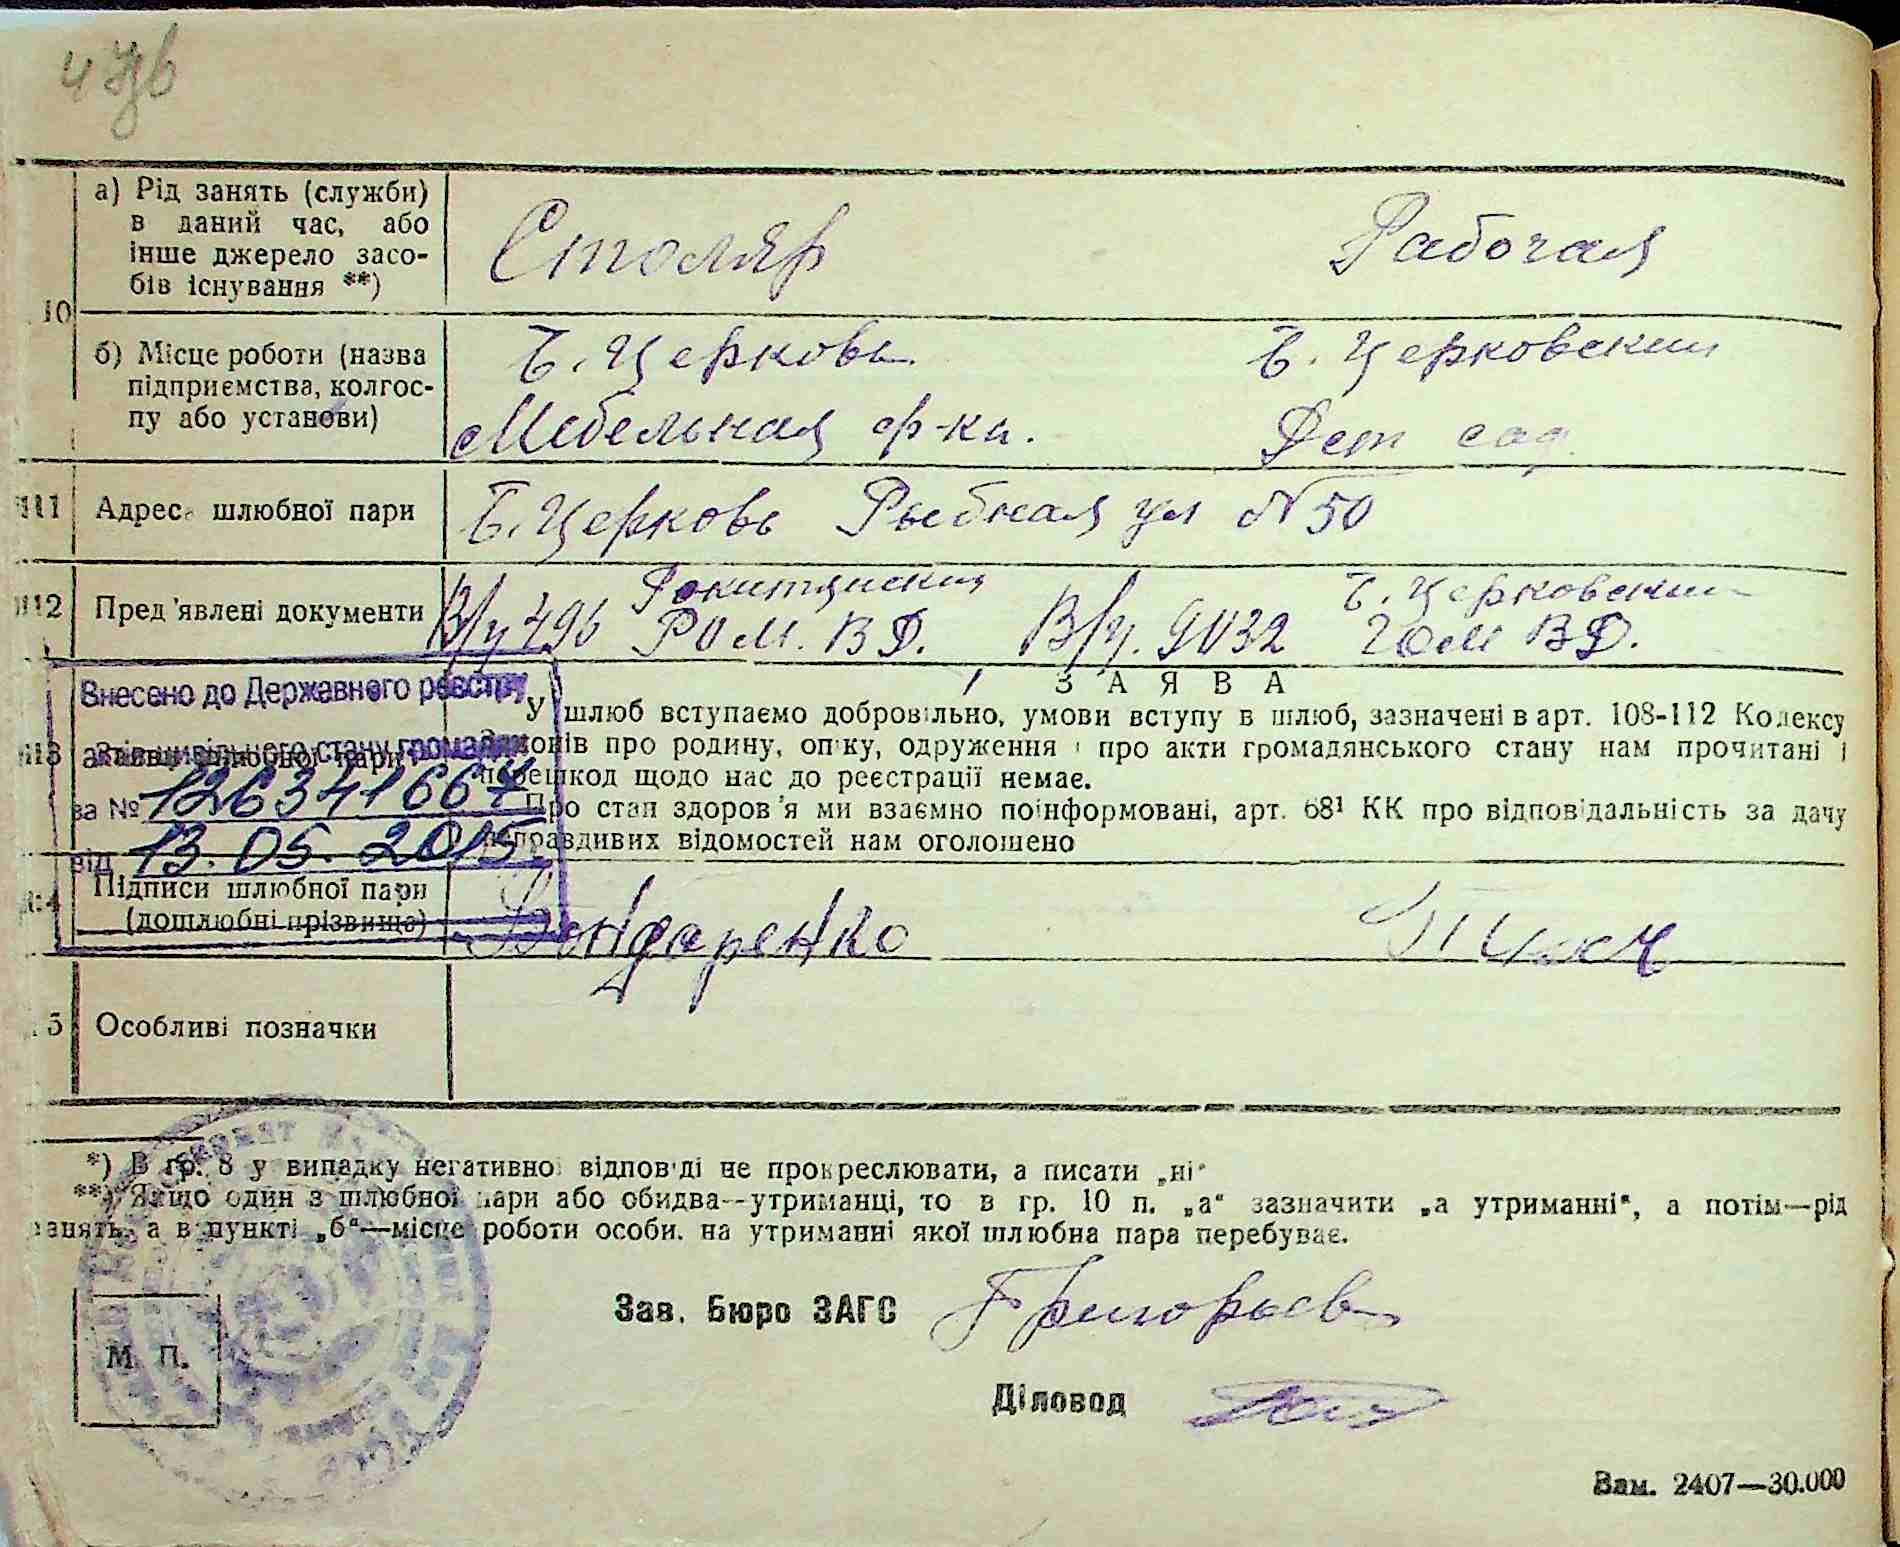 а) Рід занять (служби)
в даний час, або
інше джерело засо-
бів існування **)
Столяр
Рабочая
10
б) Місце роботи (назва
підприємства, колгос-
пу або установи)
Б. Церковь
Мебельная ф-ка.
Б. Церковский
Дет сад
11 Адреса шлюбної пари
Б. Церковь Рыбная ул №50
12 Пред'явлені документи
В/у 496 Рокитянский
РОМ. ВД.
В/у. 9032 Б. Церковский
ГОМ ВД.
Внесено до Державного реєстру
актів цивільного стану громадян
за № 126341667
від 13.05.2015
13 Заява шлюбної пари
ЗАЯВА
У шлюб вступаємо добровільно, умови вступу в шлюб, зазначені в арт. 108-112 Кодексу
Законів про родину, опіку, одруження і про акти громадянського стану нам прочитані і
перешкод щодо нас до реєстрації немає.
Про стан здоров'я ми взаємно поінформовані, арт. 68¹ КК про відповідальність за дачу
неправдивих відомостей нам оголошено
14 Підписи шлюбної пари
(дошлюбні прізвища)
Бондаренко
5 Особливі позначки
*) В гр. 8 у випадку негативної відповіді не прокреслювати, а писати „ні“
**) Якщо один з шлюбної пари або обидва—утриманці, то в гр. 10 п. „а“ зазначити „а утриманні“, а потім—рід
занять, а в пункті „б“—місце роботи особи. на утриманні якої шлюбна пара перебуває.
Зав. Бюро ЗАГС Григорьев
М. П.
Діловод
Зам. 2407—30.000